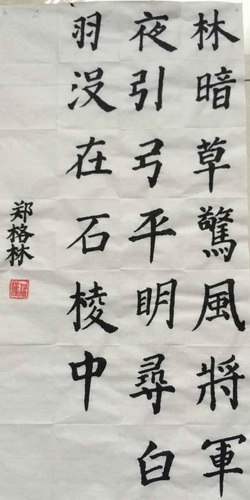 林暗草驚風將軍
夜引弓平明尋白
羽没在石棱中
郑格林